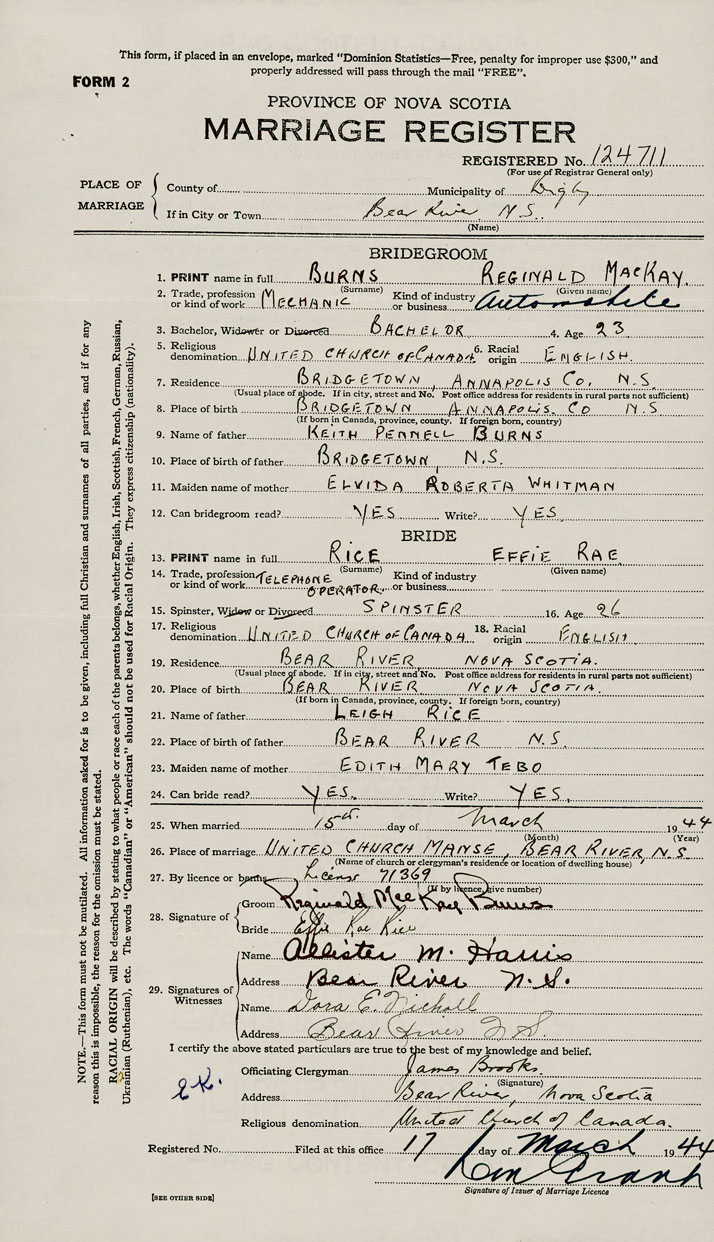 This form, if placed in an envelope, marked "Dominion Statistics—Free, penalty for improper use $300," and
properly addressed will pass through the mail "FREE".
FORM 2
PROVINCE OF NOVA SCOTIA
MARRIAGE REGISTER
REGISTERED No. 124711
(For use of Registrar General only)
PLACE OF MARRIAGE
County of Municipality of Digby
If in City or Town Bear River N.S.
(Name)
BRIDEGROOM
1. PRINT name in full BURNS REGINALD MACKAY.
(Surname) (Given name)
2. Trade, profession or kind of work MECHANIC Kind of industry or business Automobile
3. Bachelor, Widower or Divorced BACHELOR 4. Age 23
5. Religious denomination UNITED CHURCH OF CANADA 6. Racial origin ENGLISH.
7. Residence BRIDGETOWN, ANNAPOLIS CO, N.S.
(Usual place of abode. If in city, street and No. Post office address for residents in rural parts not sufficient)
8. Place of birth BRIDGETOWN ANNAPOLIS. CO N.S
(If born in Canada, province, county. If foreign born, country)
9. Name of father KEITH PENNELL BURNS
10. Place of birth of father BRIDGETOWN, N.S.
11. Maiden name of mother ELVIDA ROBERTA WHITMAN
12. Can bridegroom read? YES Write? YES.
BRIDE
13. PRINT name in full RICE EFFIE RAE
(Surname) (Given name)
14. Trade, profession or kind of work TELEPHONE OPERATOR. Kind of industry or business
15. Spinster, Widow or Divorced SPINSTER 16. Age 26
17. Religious denomination UNITED CHURCH OF CANADA 18. Racial origin ENGLISH.
19. Residence BEAR RIVER NOVA SCOTIA.
(Usual place of abode. If in city, street and No. Post office address for residents in rural parts not sufficient)
20. Place of birth BEAR RIVER NOVA SCOTIA.
(If born in Canada, province, county. If foreign born, country)
21. Name of father LEIGH RICE
22. Place of birth of father BEAR RIVER N.S.
23. Maiden name of mother EDITH MARY TEBO
24. Can bride read? YES. Write? YES.
25. When married 15th day of March 1944
(Month) (Year)
26. Place of marriage UNITED CHURCH MANSE, BEAR RIVER, N.S
(Name of church or clergyman's residence or location of dwelling house)
27. By licence or banns License 71369
(If by licence, give number)
28. Signature of
Groom Reginald MacKay Burns
Bride Effie Rae Rice
29. Signatures of Witnesses
Name Allister M. Harris
Address Bear River N.S.
Name Dora E. Nicholl
Address Bear River N.S.
I certify the above stated particulars are true to the best of my knowledge and belief.
Officiating Clergyman James Brooks.
(Signature)
E.K.
Address Bear River, Nova Scotia
Religious denomination United Church of Canada.
Registered No. Filed at this office 17 day of March 1944
Signature of Issuer of Marriage Licence
[SEE OTHER SIDE]
NOTE.—This form must not be mutilated. All information asked for is to be given, including full Christian and surnames of all parties, and if for any
reason this is impossible, the reason for the omission must be stated.
RACIAL ORIGIN will be described by stating to what people or race each of the parents belongs, whether English, Irish, Scottish, French, German, Russian,
Ukrainian (Ruthenian), etc. The words "Canadian" or "American" should not be used for Racial Origin. They express citizenship (nationality).